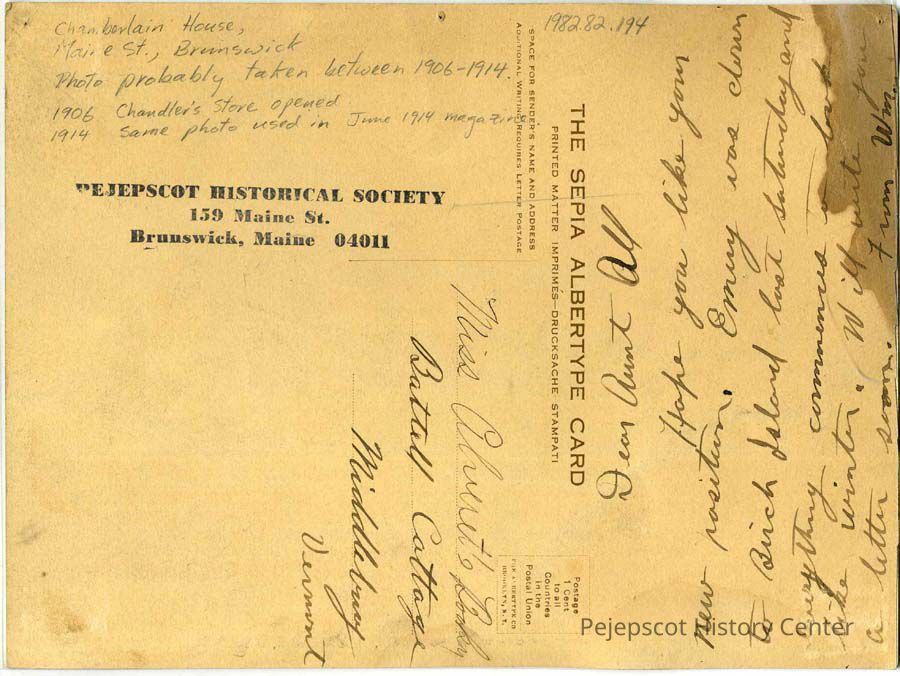 Chamberlain House,
Maine St., Brunswick
Photo probably taken between 1906-1914.
1906 Chandler's Store opened
1914 Same photo used in June 1914 magazine
1982.82.194
PEJEPSCOT HISTORICAL SOCIETY
159 Maine St.
Brunswick, Maine 04011
SPACE FOR SENDER'S NAME AND ADDRESS
ADDITIONAL WRITING REQUIRES LETTER POSTAGE
THE SEPIA ALBERTYPE CARD
PRINTED MATTER IMPRIMÉS—DRUCKSACHE STAMPATI
Postage
1 Cent
to all
Countries
in the
Postal Union
THE ALBERTYPE CO
BROOKLYN, N. Y.
Miss
Battell Cottage
Middlebury
Vermont
Dear Aunt All
Hope you like your
new position. Emery was down
to Birch Island last saturday and
everything commences to look
like winter. Will write you
a letter soon. From Wm
Pejepscot History Center